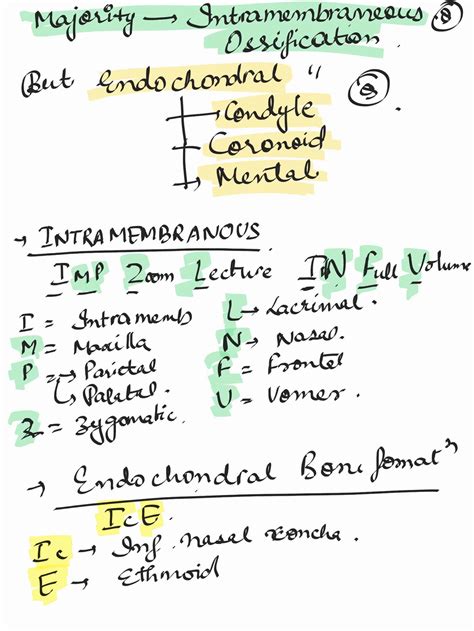 Majority → Intramembraneous
Ossification
But Endochondral "
→ Condyle
Coronoid
→ Mental
→ INTRAMEMBRANOUS
IMP Zoom Lecture IN Full Volume
I = Intramemb
M = Maxilla
P = → Parietal
↳ Palatal.
Z = Zygomatic.
L → Lacrimal.
N → Nasal.
F = Frontal
V = Vomer.
→ Endochondral Bone formatⁿ
IcE.
Ic → Inf. nasal concha.
E → Ethmoid